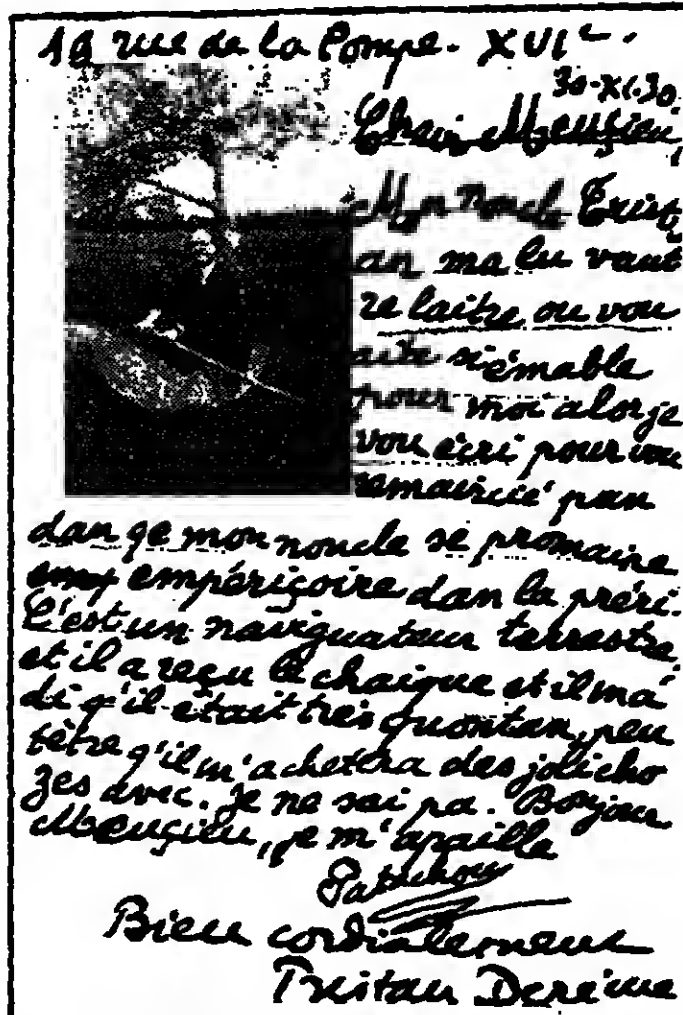 18 rue de la Pompe. XVIe.
30-XI.30.
Chair Meuçieu,
Mon noncle Trist
an ma lu vaut
re laitre ou vou
aite si émable
pour moi alor je
vou écri pour vou
remaircié pan
dan qe mon noncle se promaine
empériçoire dan la préri.
C'est un naviguateur terrestre,
et il a reçu le chaique et il m'a
di q'il était très quontan, peu
tètre q'il m'achetera des joli cho
zes avec. Je ne sai pa. Bonjour
Meuçieu, je m'apaille
Patachou
Bien cordialement
Tristan Derème